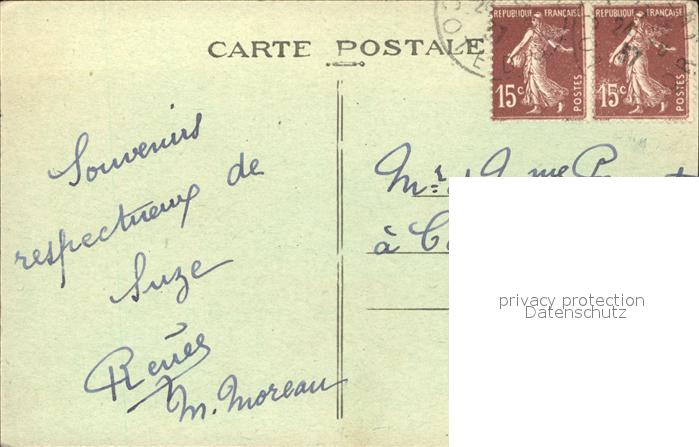 CARTE POSTALE
REPUBLIQUE FRANÇAISE
15c
POSTES
REPUBLIQUE FRANÇAISE
15c
POSTES
Souvenirs
respectueux de
Suze
Renée
M. Moreau
Mr & Mme
à
privacy protection
Datenschutz